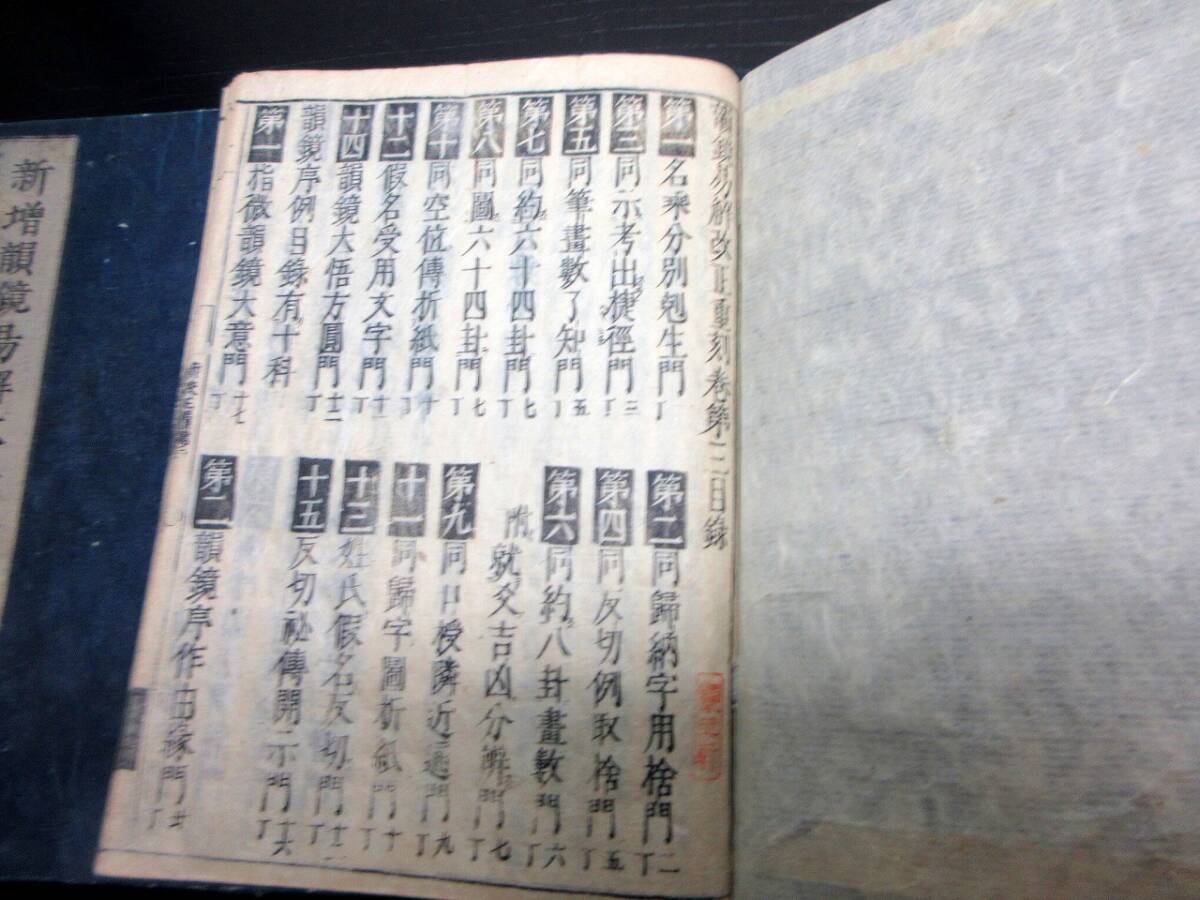 韻鏡易解改正重刻卷第三目錄
第一 名乘分別剋生門 丁
第二 同歸納字用捨門 二丁
第三 同示考出捷徑門 三丁
第四 同反切例取捨門 五丁
第五 同筆畫數了知門 五丁
第六 同約八卦畫數門 六丁
第七 同約六十四卦門 七丁
附 就爻吉凶分辨門 七丁
第八 同圖六十四卦門 七丁
第九 同口授隣近通門 九丁
第十 同空位傳折紙門 十丁
十一 同歸字圖折紙門 十丁
十二 假名受用文字門 十一丁
十三 姓氏假名反切門 十二丁
十四 韻鏡大悟方圓門 十二丁
十五 反切祕傳開示門 十六丁
韻鏡序例目錄有十科
第一 指微韻鏡大意門 十七丁
第二 韻鏡序作由緣門 廿丁
新增韻鏡易解